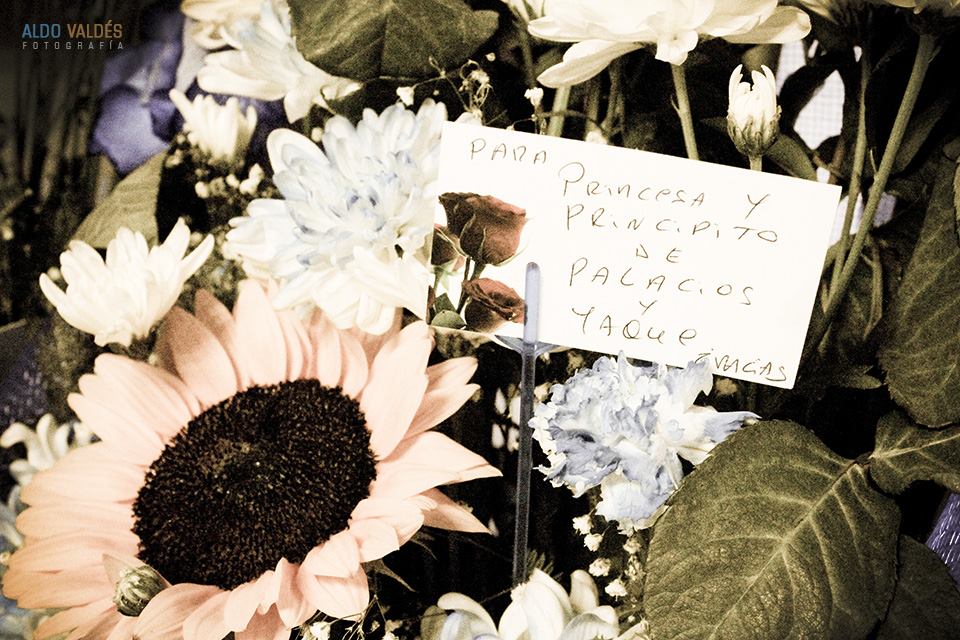 ALDO VALDÉS
FOTOGRAFÍA
PARA
PRINCESA Y
PRINCIPITO
DE
PALACIOS
Y
YAQUE